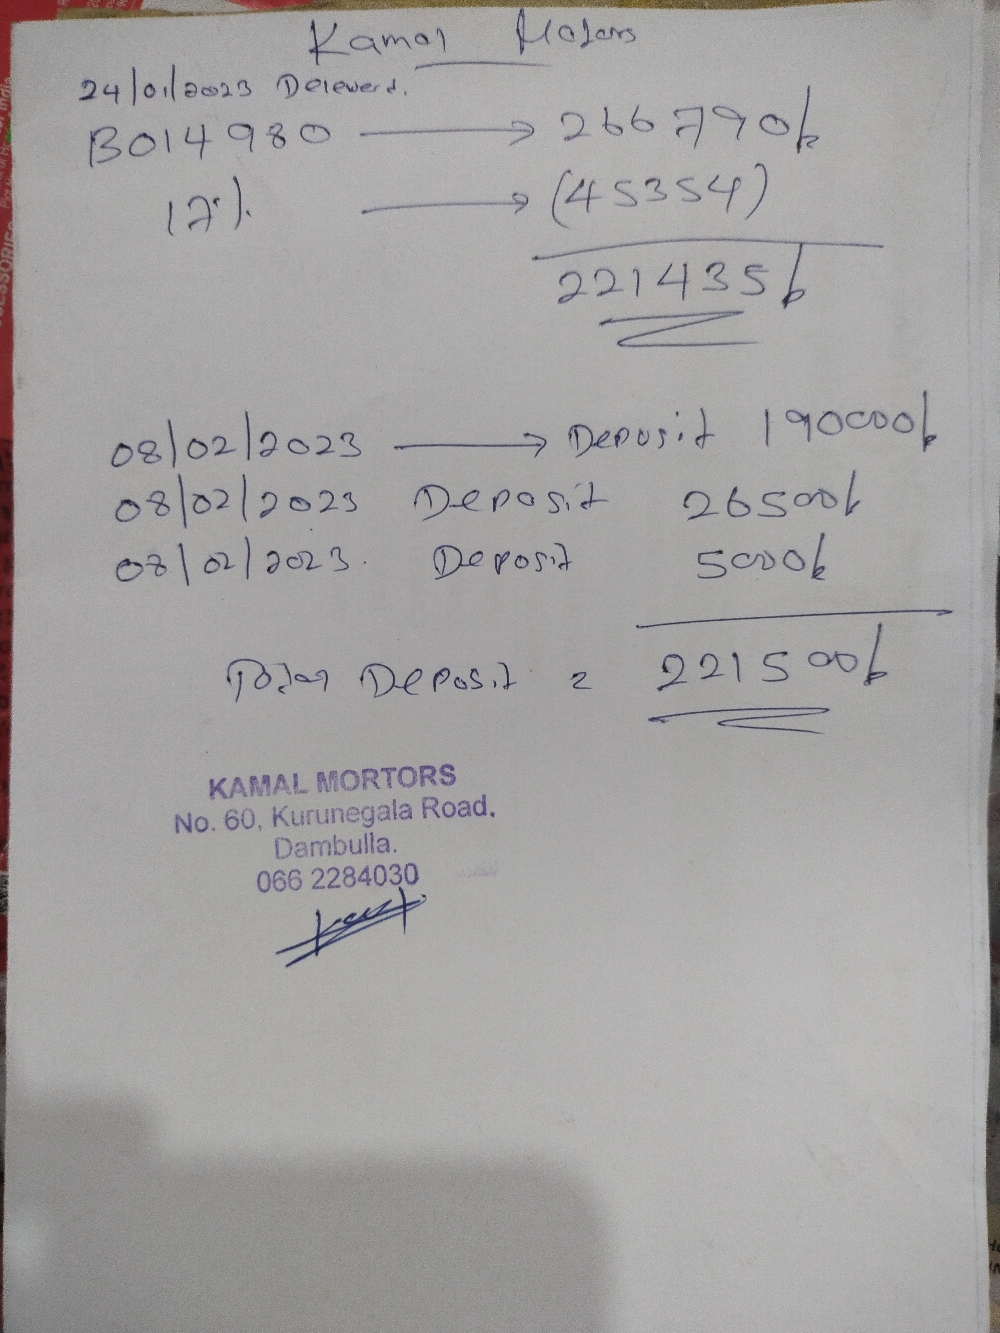 Kamal Motors
24/01/2023 Deleverd.
B014980 → 266790/-
17% → (45354)
221435/-
08/02/2023 → Deposit 190000/-
08/02/2023 Deposit 26500/-
08/02/2023. Deposit 5000/-
Total Deposit = 221500/-
KAMAL MORTORS
No. 60, Kurunegala Road,
Dambulla.
066 2284030